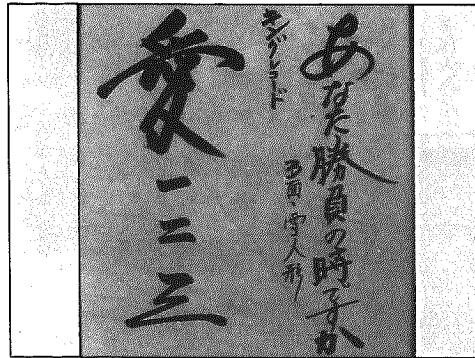 あなた勝負の時ですか
B面・雪人形
キングレコード
愛一二三